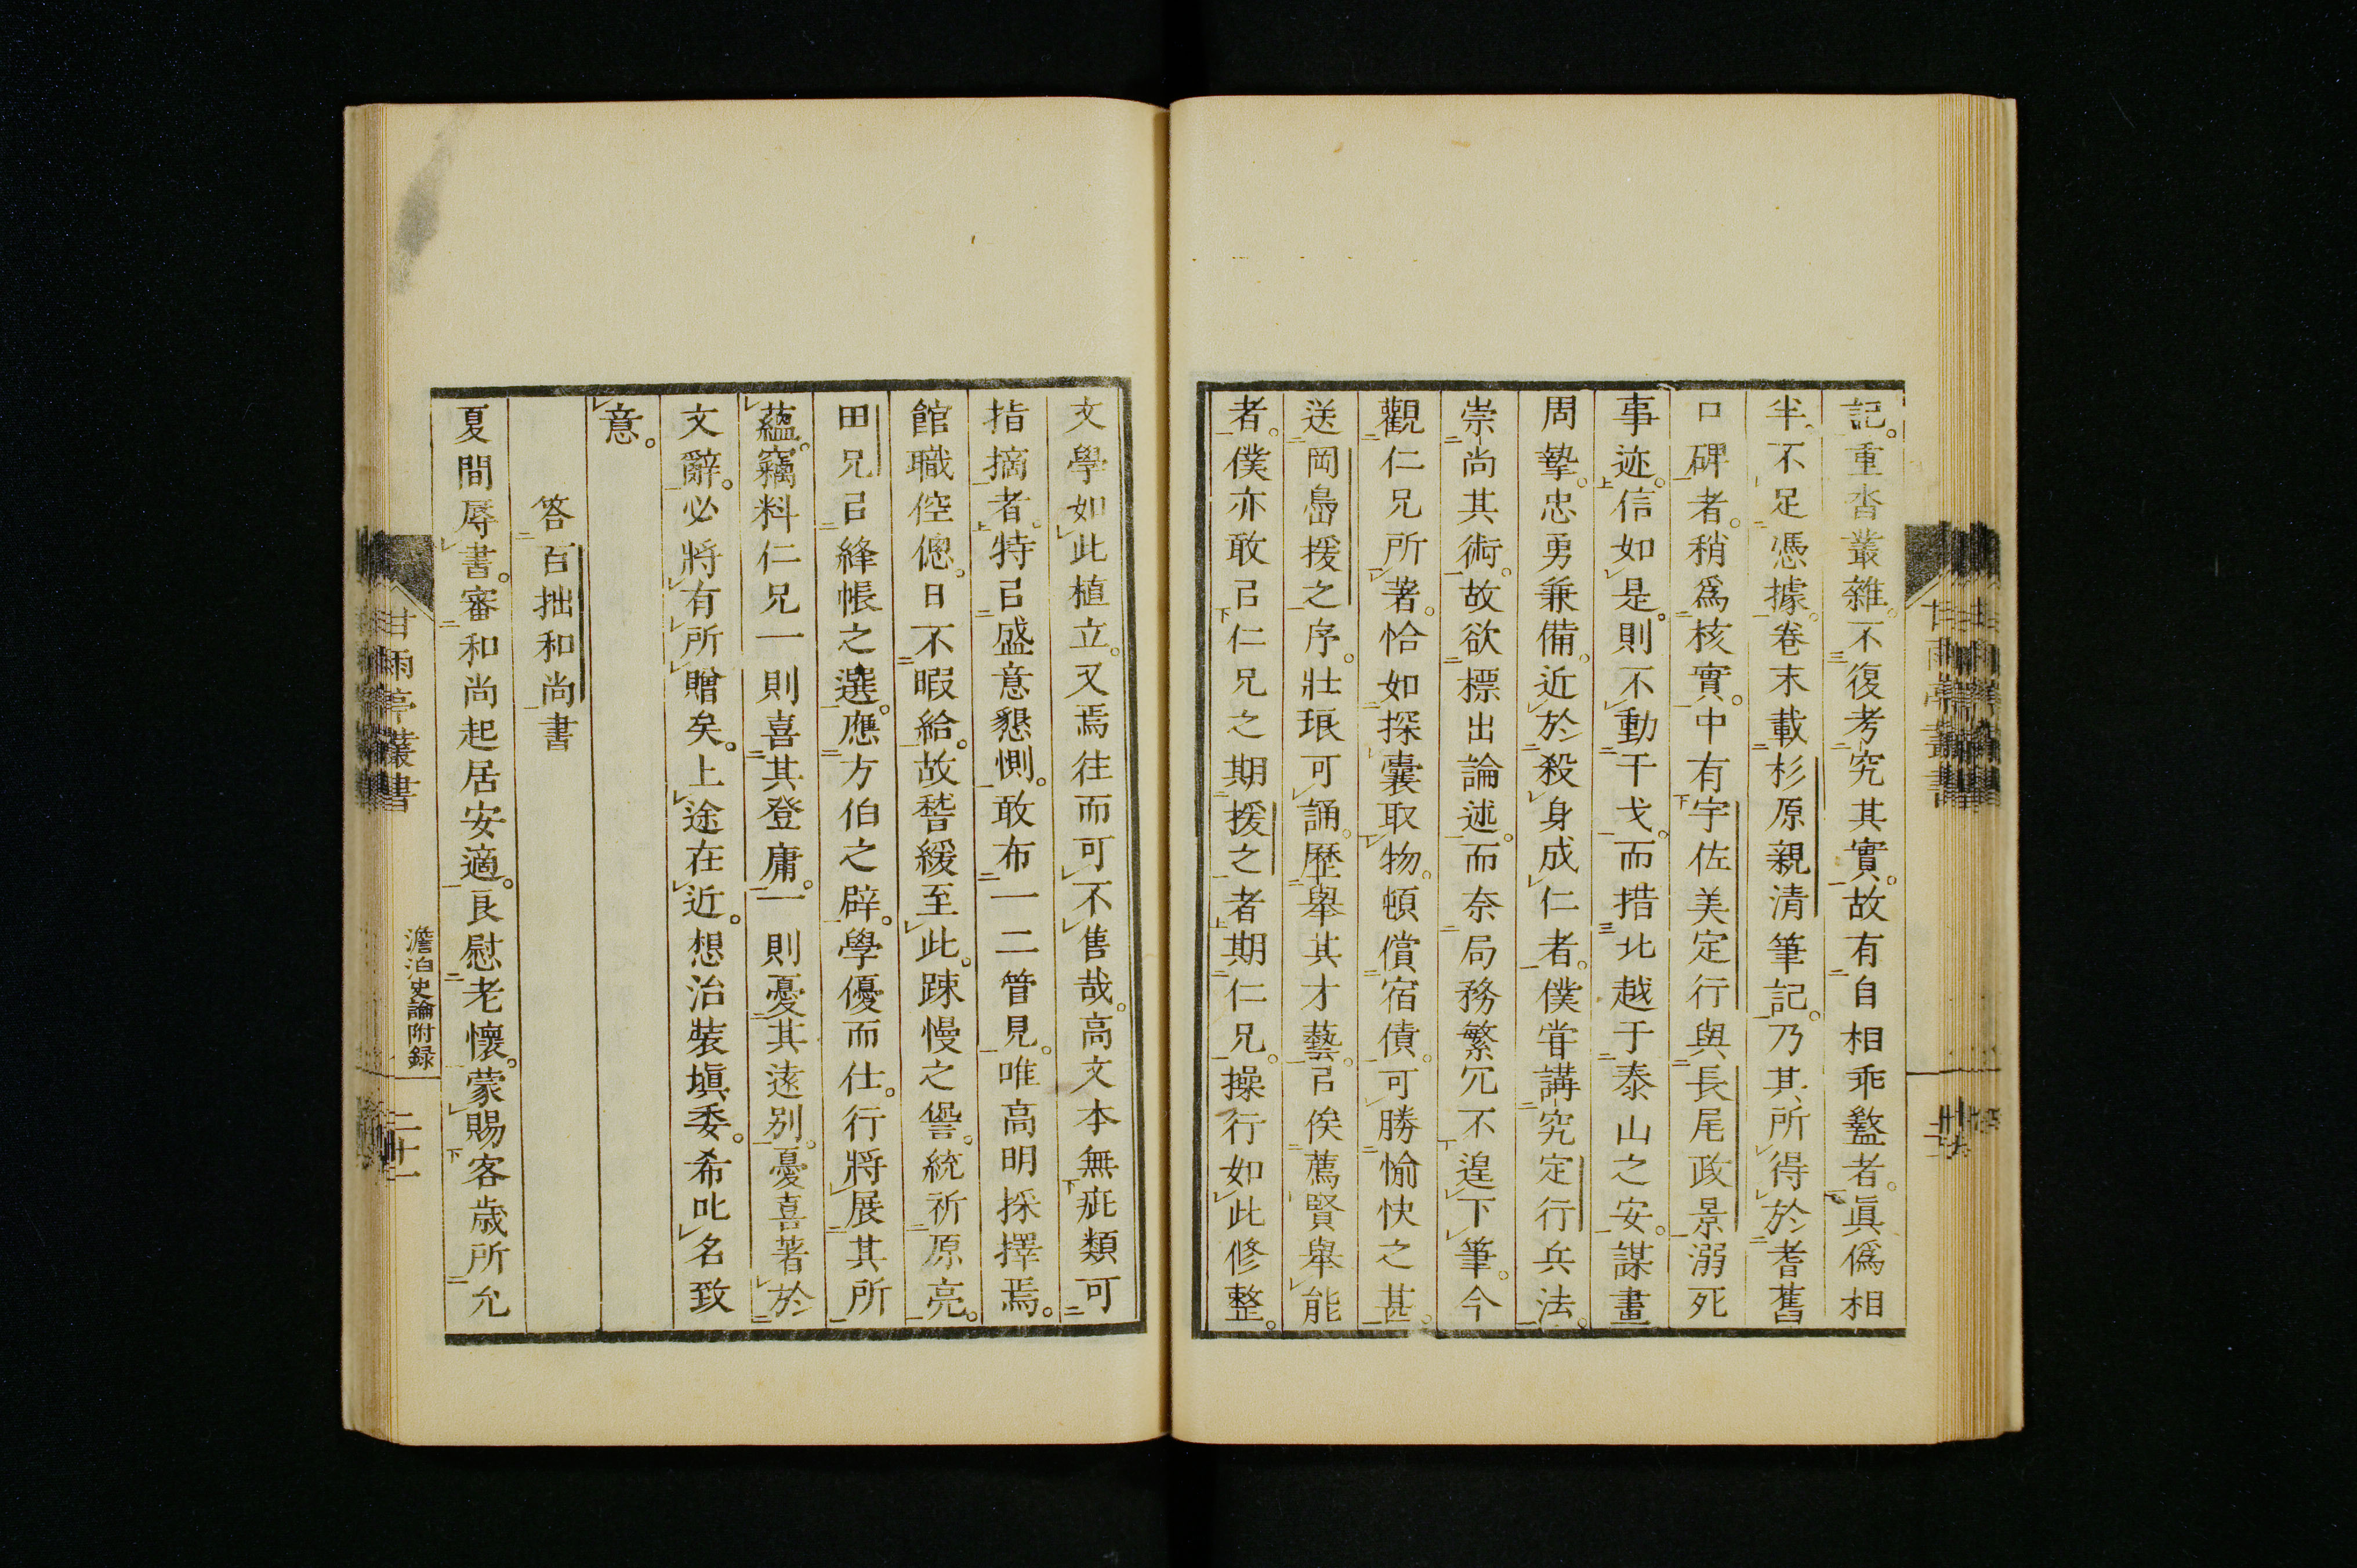 記。重沓叢雜。不復考究其實。故有自相乖盭者。眞僞相
半。不足憑據。卷末載杉原親清筆記。乃其所得於耆舊
口碑者。稍爲核實。中有宇佐美定行與長尾政景溺死
事迹。信如是。則不動干戈。而措北越于泰山之安。謀畫
周摯。忠勇兼備。近於殺身成仁者。僕甞講究定行兵法。
崇尚其術。故欲標出論述。而奈局務繁冗不遑下筆。今
觀仁兄所著。恰如探囊取物。頓償宿債。可勝愉快之甚。
送岡嶌援之序。壯琅可誦。歷舉其才藝。㠯俟薦賢舉能
者。僕亦敢㠯仁兄之期援之者期仁兄。操行如此修整。
文學如此植立。又焉往而可不售哉。高文本無疵類可
指摘者。特㠯盛意懇惻。敢布一二管見。唯高明採擇焉。
館職倥傯。日不暇給。故嵆緩至此。踈慢之諐。統祈原亮。
田兄㠯絳帳之選。應方伯之辟。學優而仕。行將展其所
蘊。竊料仁兄一則喜其登庸。一則憂其遠別。憂喜著於
文辭。必將有所贈矣。上途在近。想治裝塡委。希叱名致
意。
答百拙和尚書
夏間辱書。審和尚起居安適。良慰老懷。蒙賜客歲所允
甘雨亭叢書
澹泊史論附録
二十一